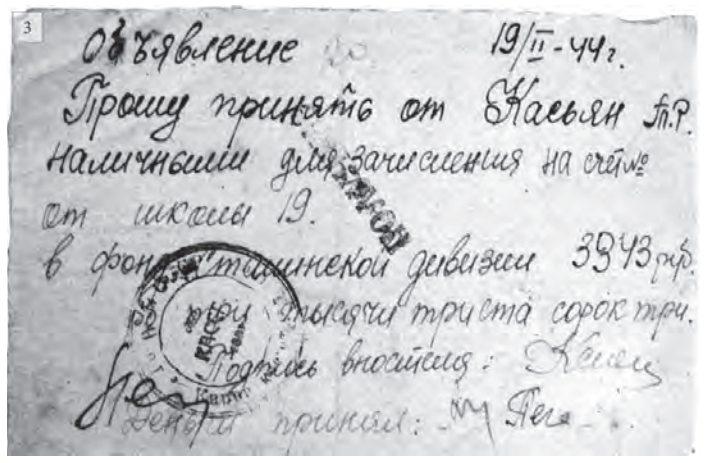 3
Объявление 19/II-44г.
Прошу принять от Касьян
наличными для зачисления на счёт №
от школы 19.
в фонд сталинской дивизии 3343 руб.
три тысячи триста сорок три.
Подпись вносителя:
Деньги принял:
КАССА